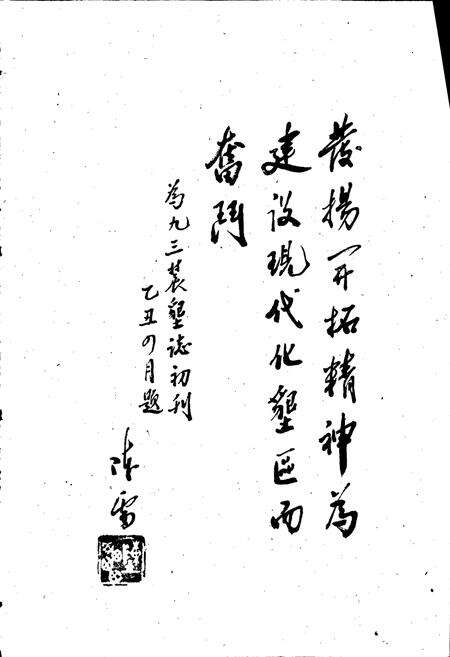 發揚开拓精神為
建设現代化墾區而
奮鬥
為九三農墾誌初刊
乙丑四月題
陳雷